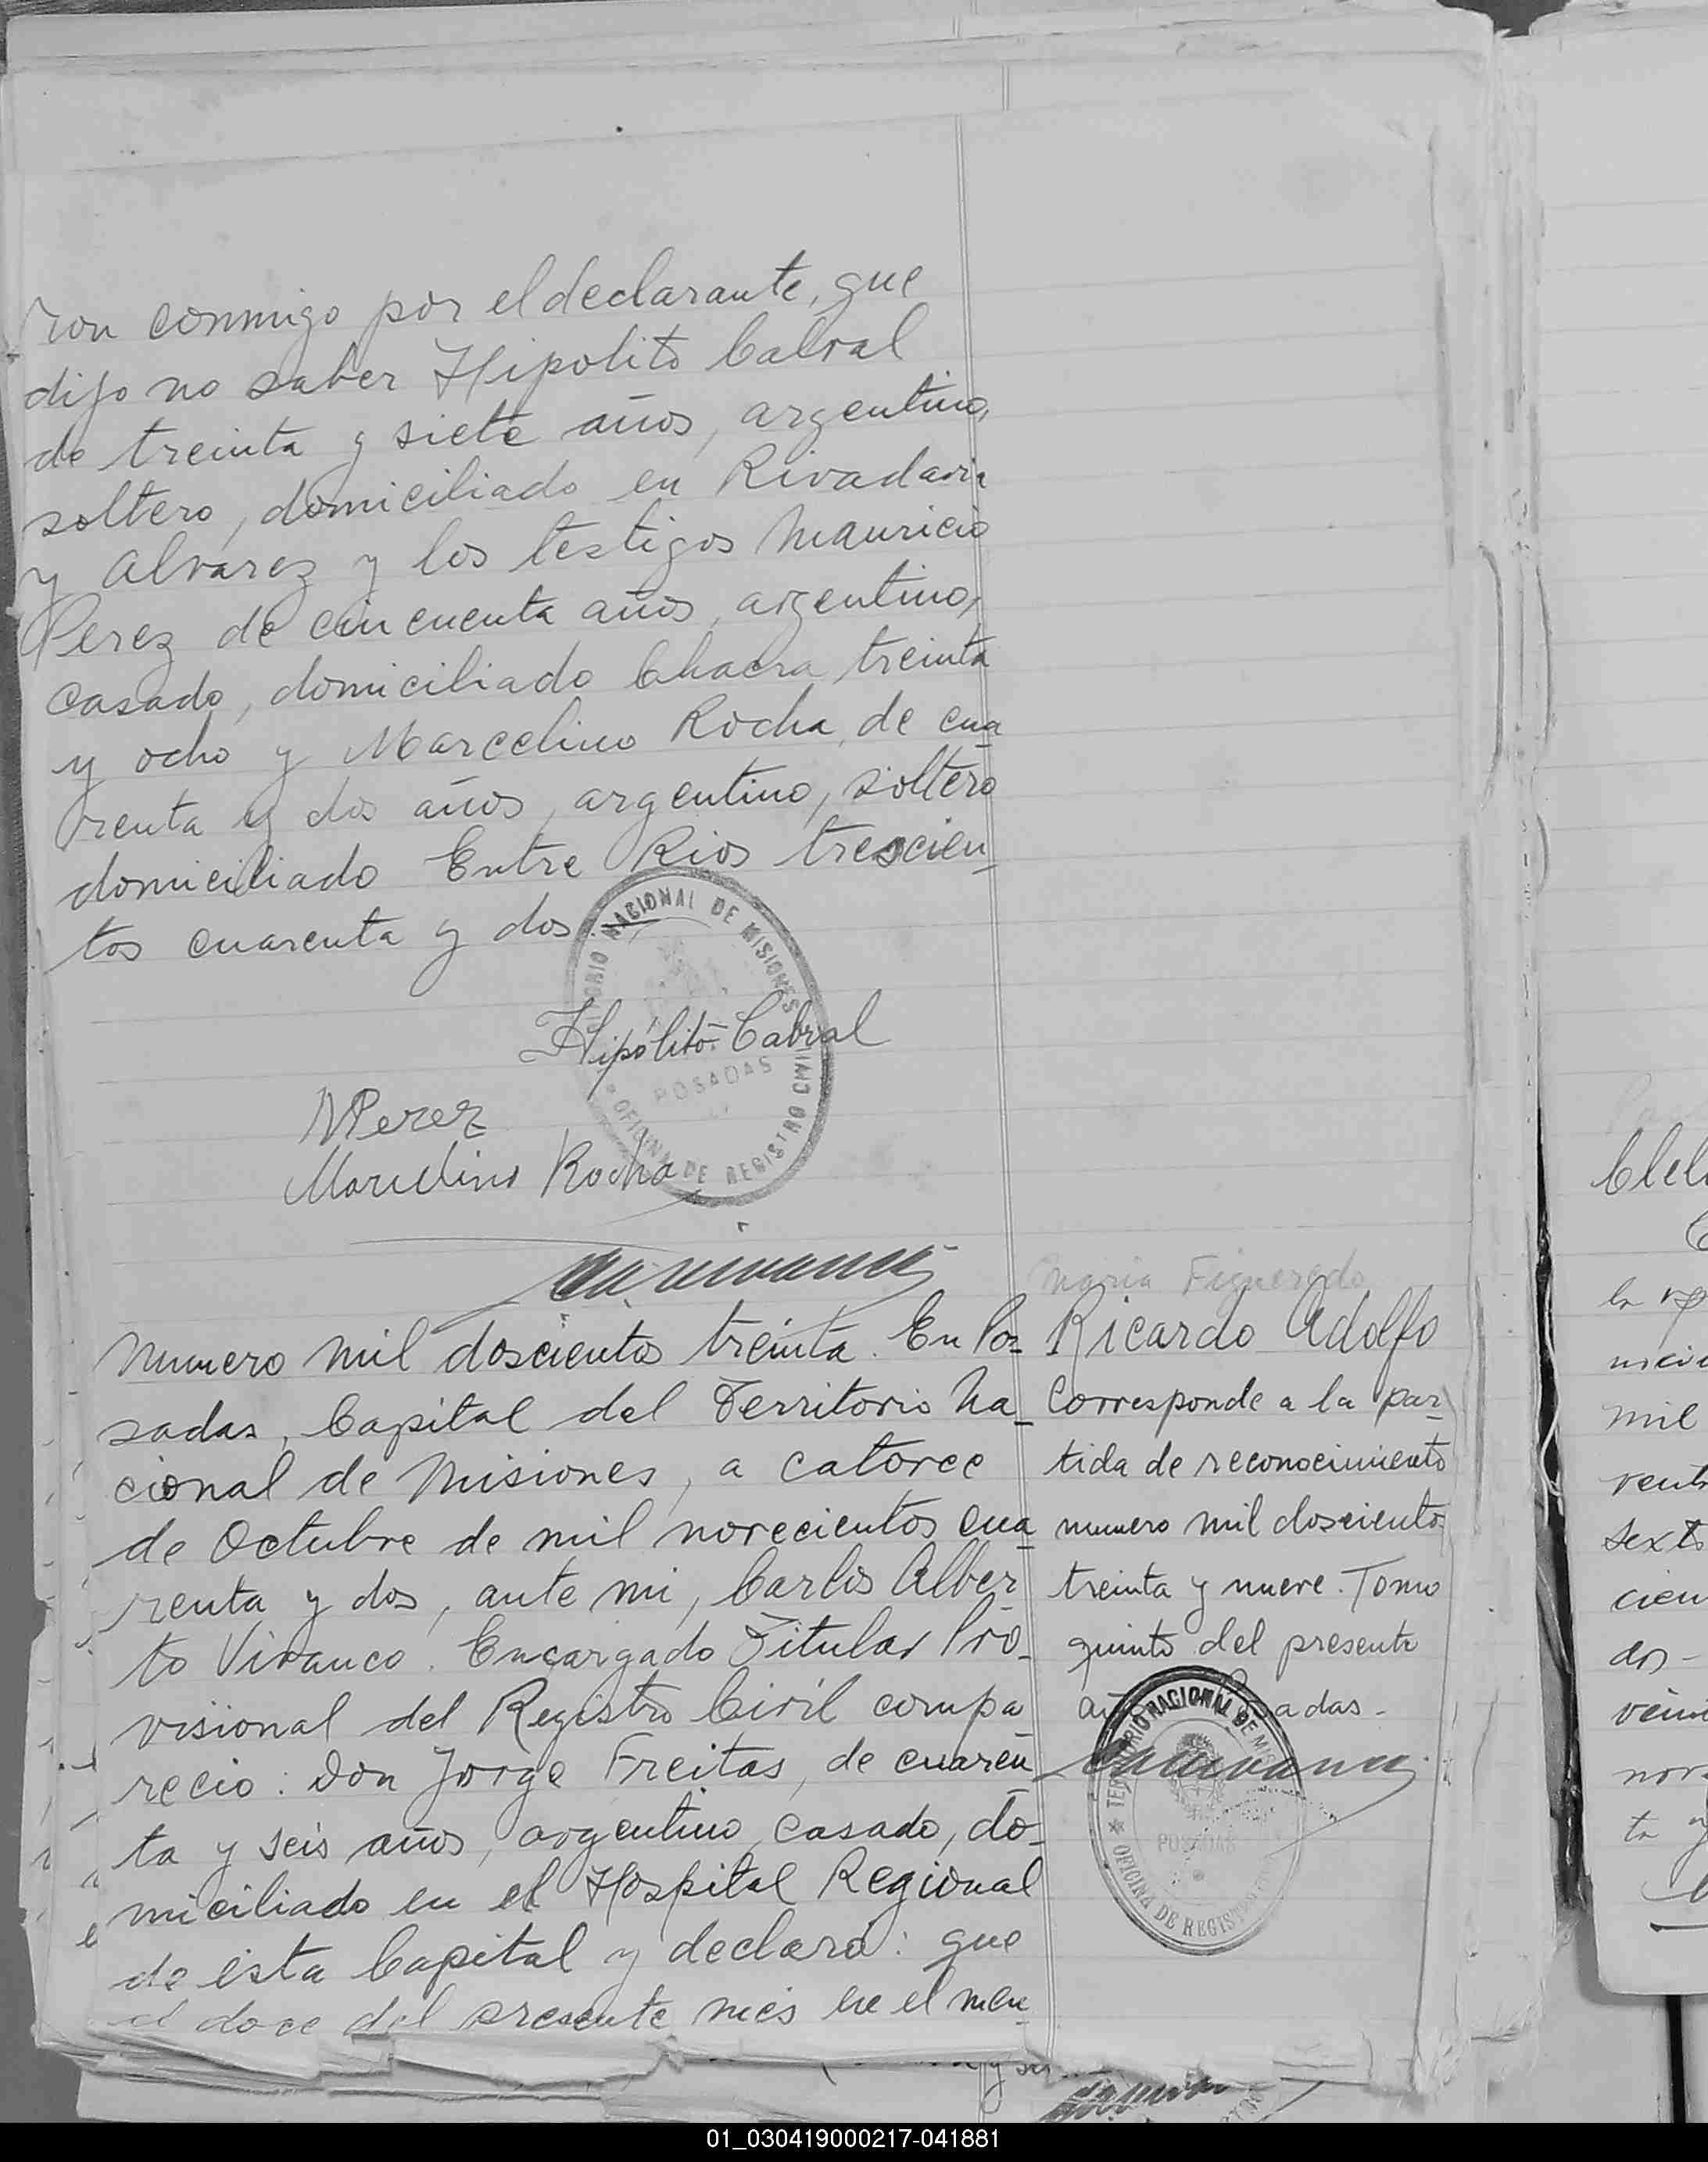 ron conmigo por el declarante, que
dijo no saber Hipolito Cabral
de treinta y siete años, argentino,
soltero, domiciliado en Rivadavia
y Alvarez y los testigos Mauricio
Perez de cincuenta años, argentino,
casado, domiciliado Chacra treinta
y ocho y Marcelino Rocha, de cua
renta y dos años, argentino, soltero
domiciliado Entre Rios trescien-
tos cuarenta y dos.
NACIONAL DE MISIONES
Hipólito Cabral
POSADAS
OFICINA DE REGISTRO CIVIL
MPerez
Marcelino Rocha
Maria Figueredo
Numero mil doscientos treinta. En Po-
sadas, Capital del Territorio Na-
cional de Misiones, a catorce
de Octubre de mil novecientos cua
renta y dos, ante mi, Carlos Alber
to Vivanco. Encargado Titular Pro-
visional del Registro Civil compa
recio: Don Jorge Freitas, de cuaren
ta y seis años, argentino, casado, do-
miciliado en el Hospital Regional
de esta Capital y declaró: que
el doce del presente mes en el men-
Ricardo Adolfo
Corresponde a la par-
tida de reconocimiento
numero mil doscientos
treinta y nueve. Tomo
quinto del presente
TERRITORIO NACIONAL DE MISIONES
POSADAS
OFICINA DE REGISTRO
mil
sexto
01_030419000217-041881